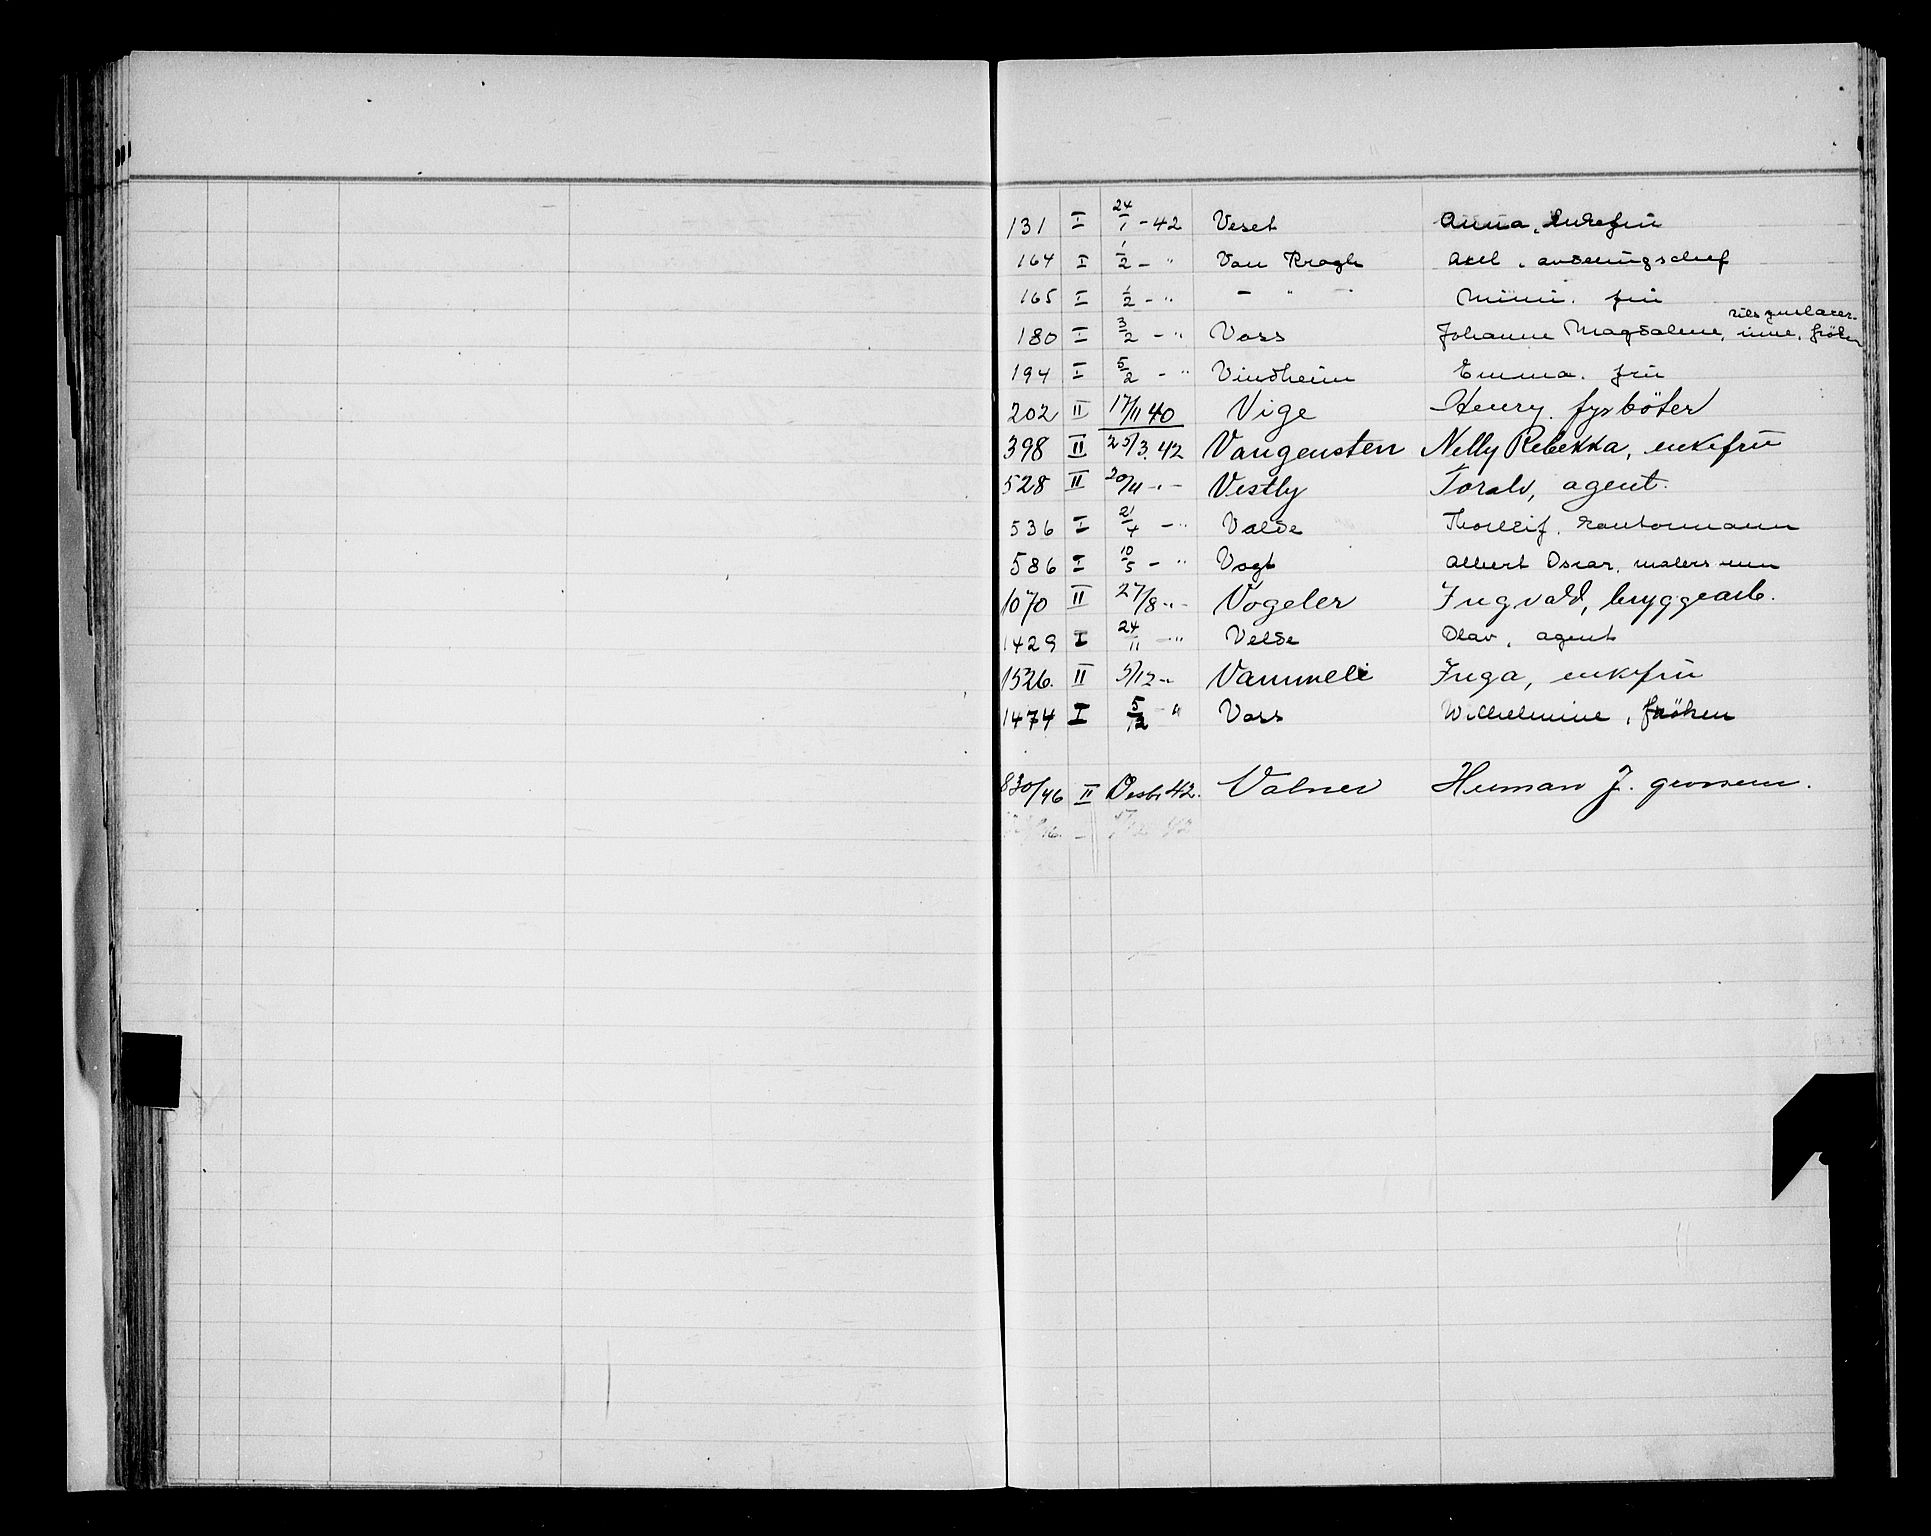 131 I 24/1 - 42 Veset Anna, enkefru
164 I 1/2 - " Von Krogh Axel, avdelingschef
165 I 1/2 - " - " - Mimi, fru
180 I 3/2 - " Voss Johanne Magdalene, telegrafist inne, fröken
194 I 5/2 - " Vindheim Emma, fru
202 II 17/11 40 Vige Henry, fyrböter
398 II 25/3. 42 Vangensten Nelly Rebekka, enkefru
528 II 20/4 - " - Vestly Toralv, agent.
536 I 21/4 - " Valde Thorleif, kontormann
586 I 10/5 - " Vogt Albert Oscar, malersvenn
1070 II 27/8 - " - Vogeler Ingvald, bryggearb.
1429 I 24/11 - " Velde Olav, agent
1526. II 5/12 - " Vammeli Inga, enkefru
1474 I 5/12 - " Voss Wilhelmine, fröken
830/46 II Desbr 42. Valner Herman J. grosserer.